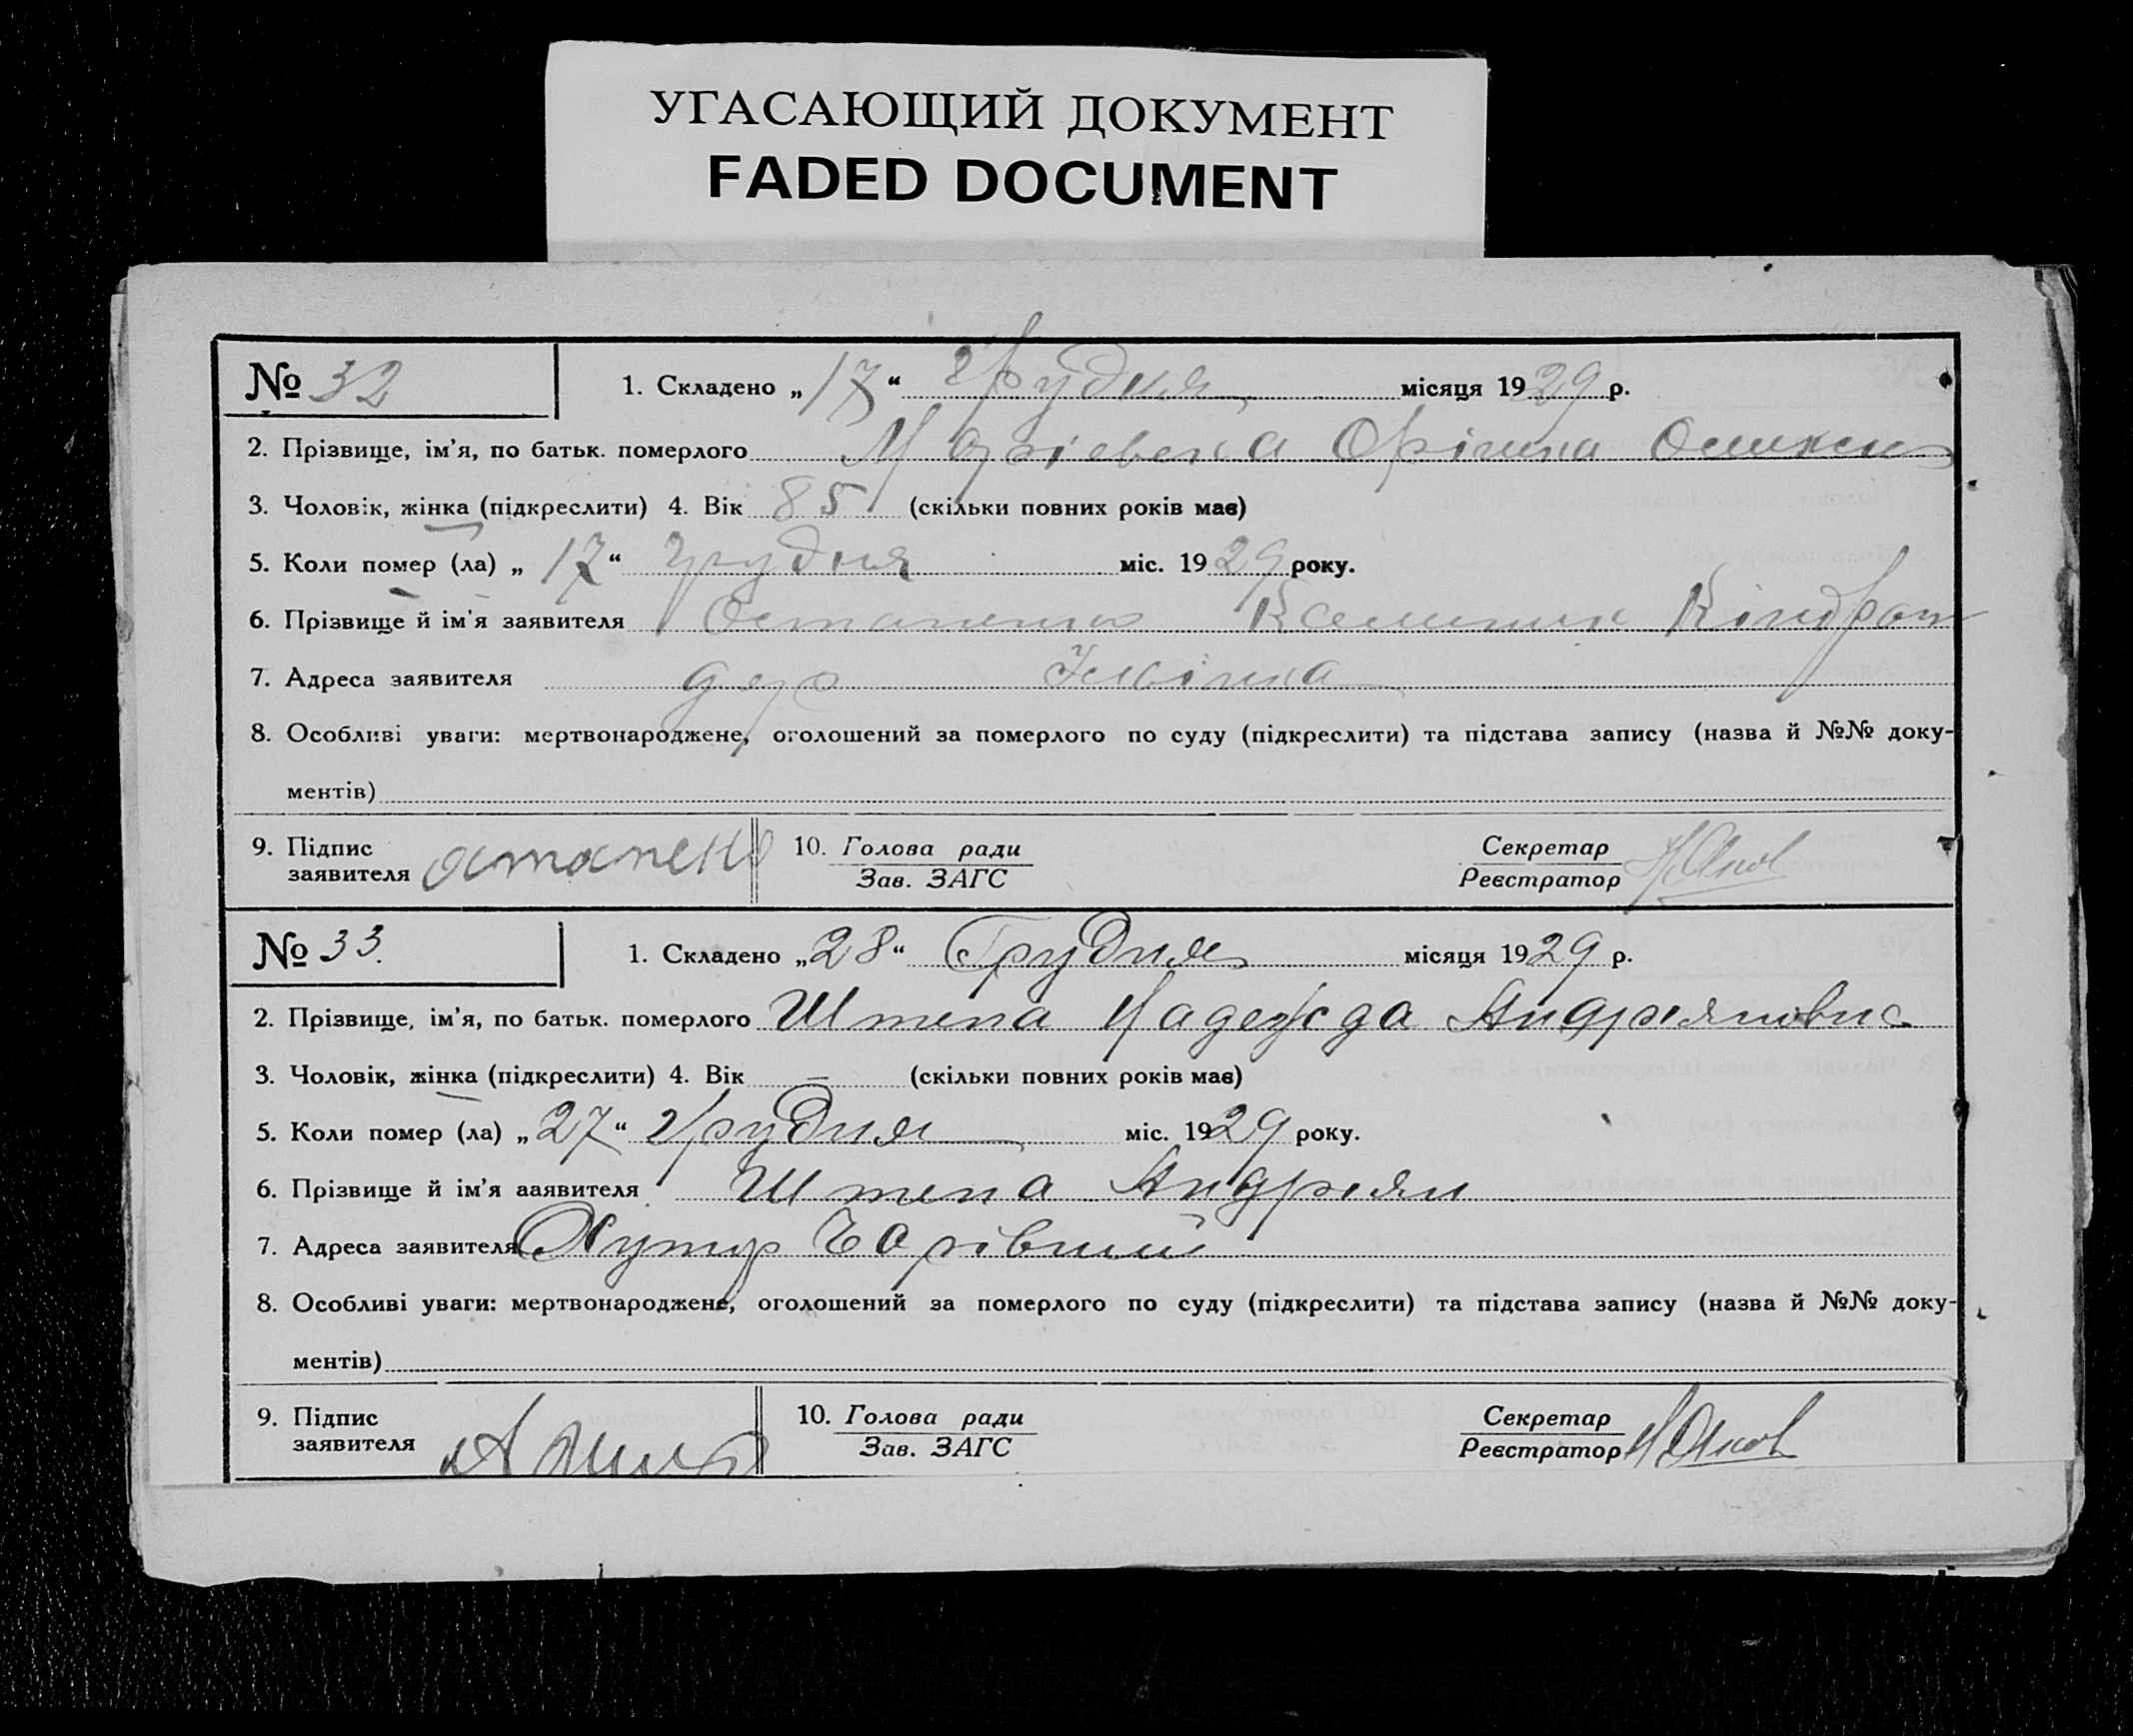 УГАСАЮЩИЙ ДОКУМЕНТ
FADED DOCUMENT
№ 32 1. Складено „17“ Грудня місяця 1929 р.
2. Прізвище, ім'я, по батьк. померлого Орішка
3. Чоловік, жінка (підкреслити) 4. Вік 85 (скільки повних років має)
5. Коли помер (ла) „17“ Грудня міс. 1929 року.
6. Прізвище й ім'я заявителя Остапенко Кіндрат
7. Адреса заявителя
8. Особливі уваги: мертвонароджене, оголошений за померлого по суду (підкреслити) та підстава запису (назва й №№ доку-
ментів)
9. Підпис заявителя Остапенко 10. Голова ради Зав. ЗАГС Секретар Реєстратор
№ 33. 1. Складено „28“ Грудня місяця 1929 р.
2. Прізвище, ім'я, по батьк. померлого Штепа Надежда Андріяновна
3. Чоловік, жінка (підкреслити) 4. Вік – (скільки повних років має)
5. Коли помер (ла) „27“ Грудня міс. 1929 року.
6. Прізвище й ім'я ааявителя Штепа Андріян
7. Адреса заявителя Хутір
8. Особливі уваги: мертвонароджене, оголошений за померлого по суду (підкреслити) та підстава запису (назва й №№ доку-
ментів)
9. Підпис заявителя 10. Голова ради Зав. ЗАГС Секретар Реєстратор